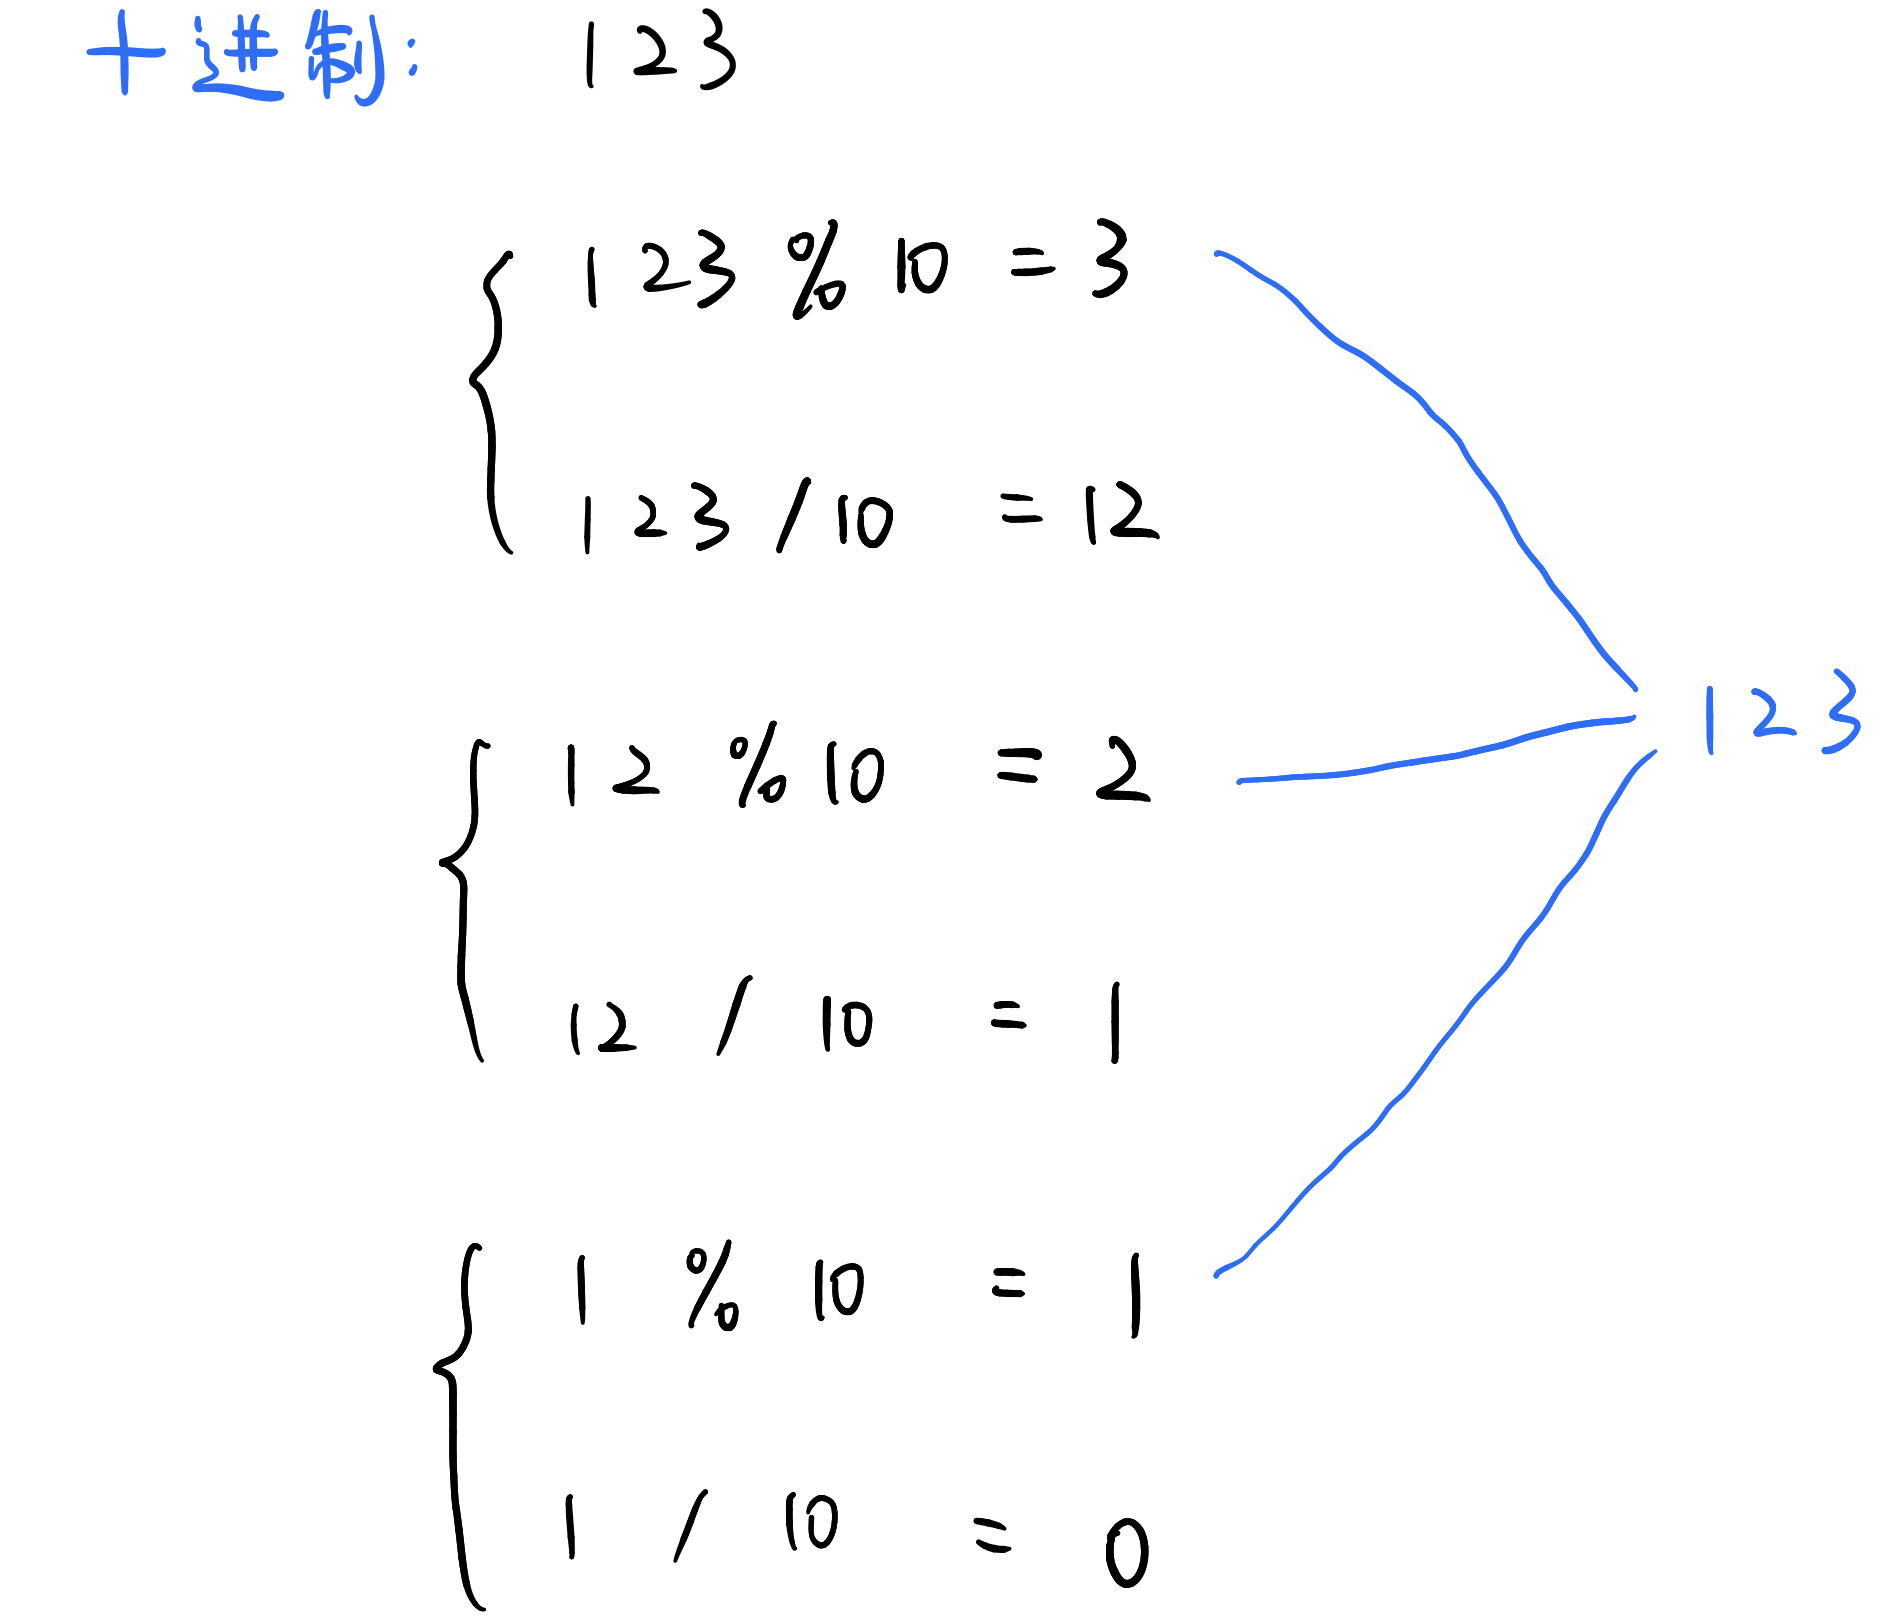 十进制: 123
123 % 10 = 3
123 / 10 = 12
123
12 % 10 = 2
12 / 10 = 1
1 % 10 = 1
1 / 10 = 0